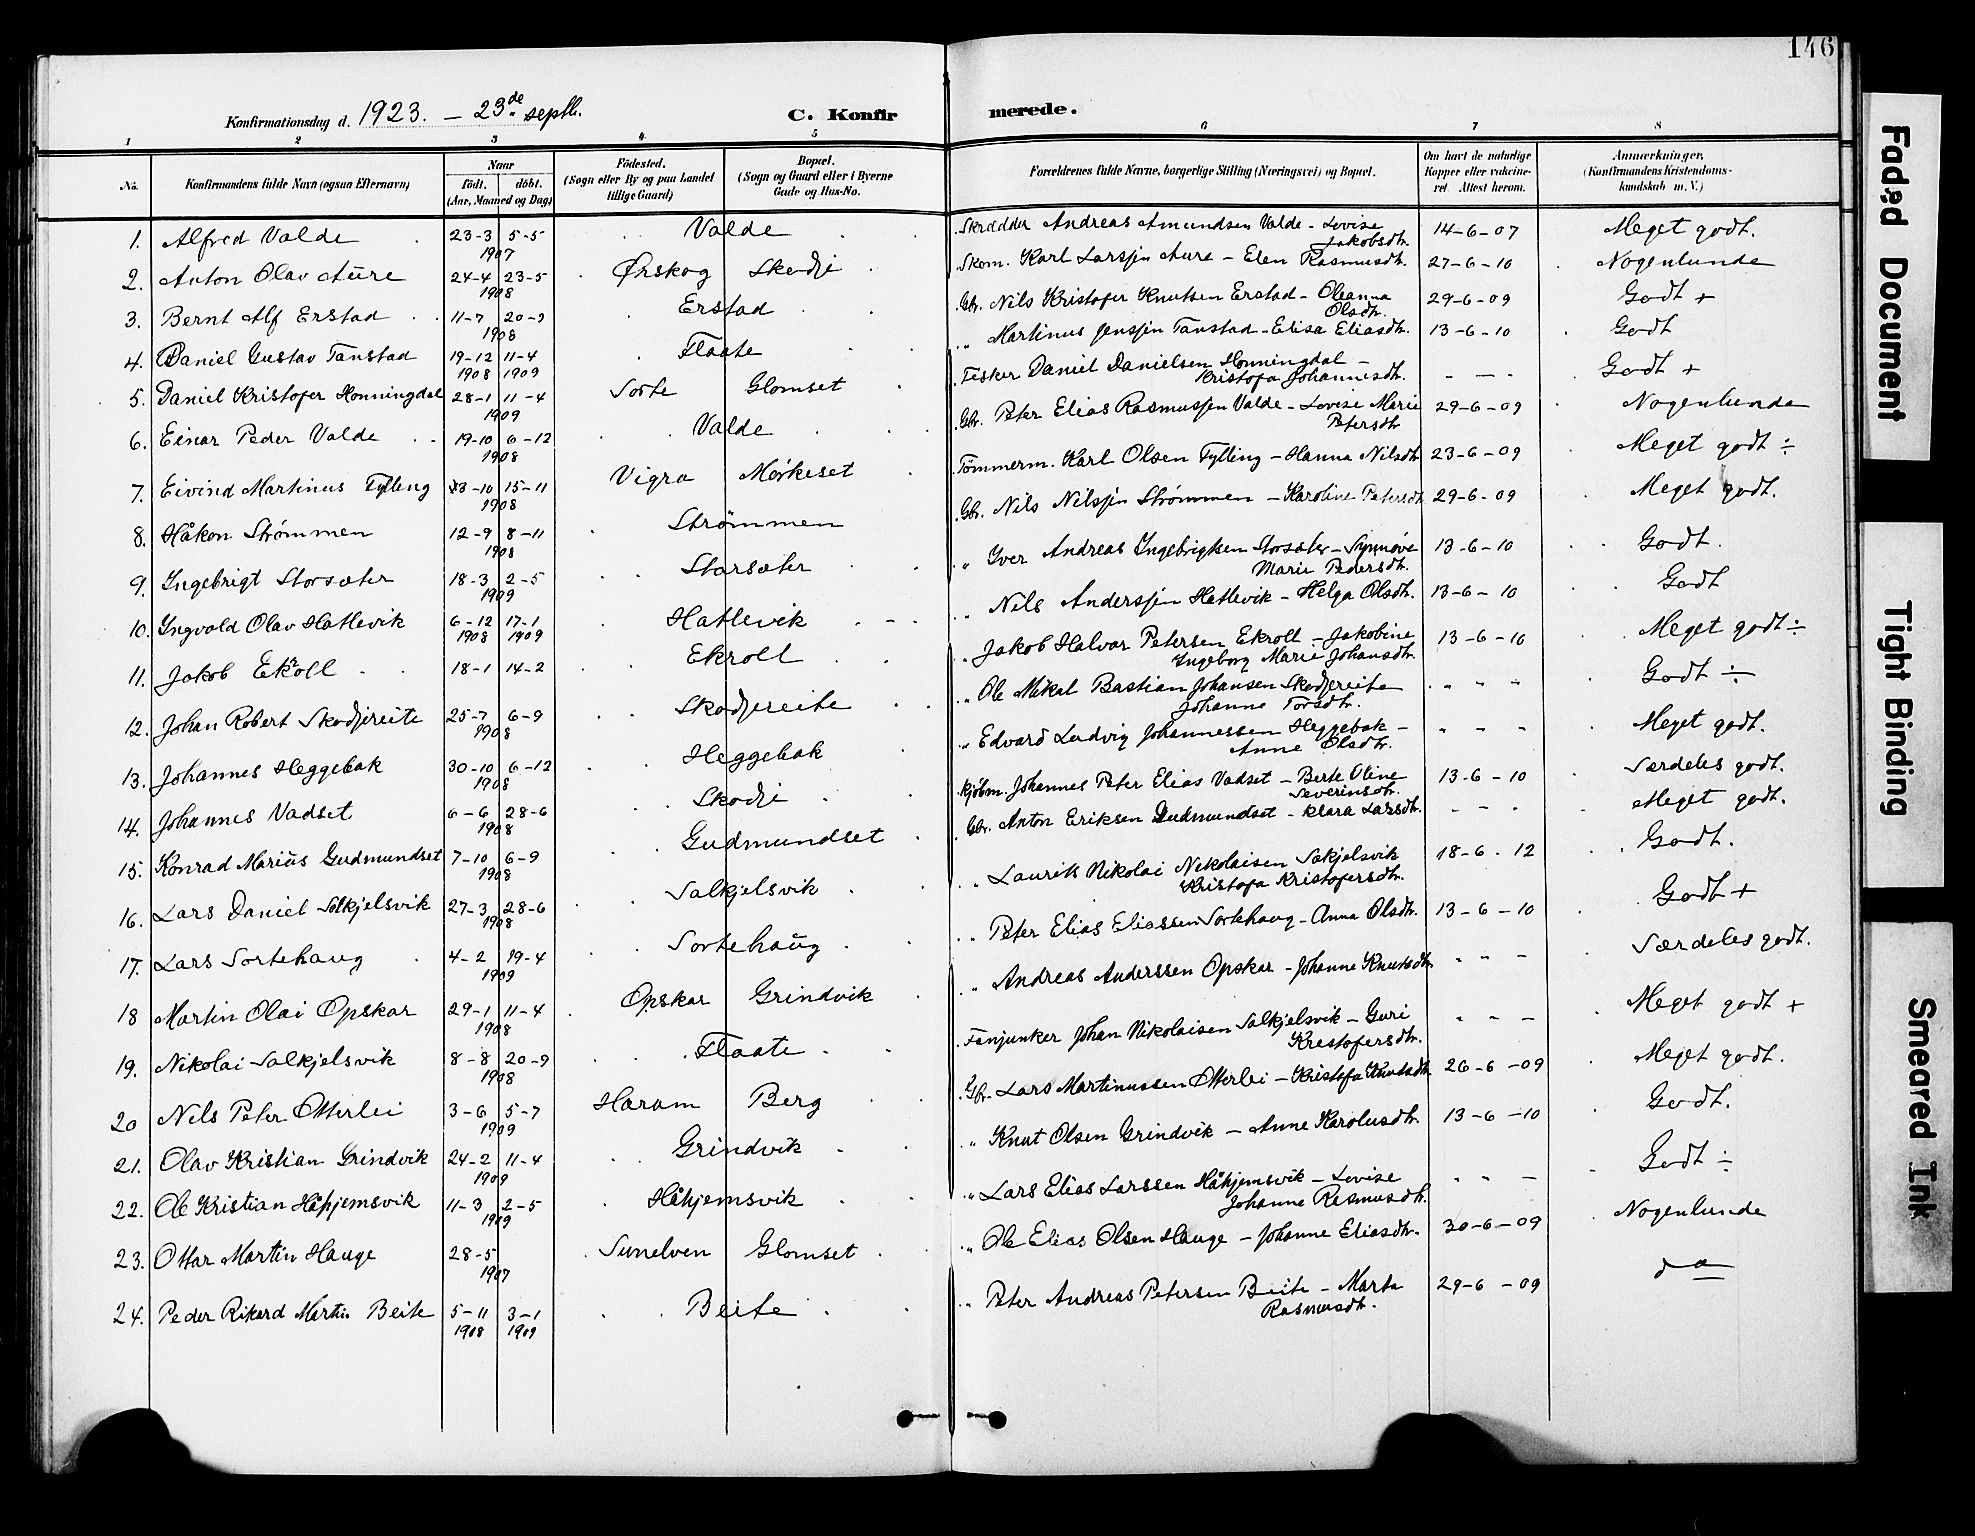 146
Konfirmationsdag d. 1923. – 23de septb. C. Konfirmerede.
1 2 3 4 5 6 7 8
No. Konfirmandens fulde Navn (ogsaa Efternavn) Naar født. døbt. (Aar, Maaned og Dag) Fødested. (Sogn eller By og paa Landet tillige Gaard) Bopæl. (Sogn og Gaard eller i Byerne Gade og Hus-No. Forældrenes fulde Navne, borgerlige Stilling (Næringsvei) og Bopæl. Om havt de naturlige Kopper eller vakcineret. Attest herom. Anmærkninger. (Konfirmandens Kristendomskundskab m. V.)
1. Alfred Valde 23-3 5-5 1907 Valde Skrædder Andreas Amundsen Valde - Lovise Jakobsdtr. 14-6-07 Meget godt.
2. Anton Olav Aure 24-4 23-5 1908 Ørskog Skodje Skom. Karl Larssen Aure - Elen Rasmusdtr. 27-6-10 Nogenlunde
3. Bernt Alf Erstad 11-7 20-9 1908 Erstad Gbr. Nils Kristofer Knutsen Erstad - Oleanna Olsdtr. 29-6-09 Godt +
4. Daniel Gustav Tanstad 19-12 1908 11-4 1909 Flaate " Martinus Jenssen Tanstad - Elisa Eliasdtr. 13-6-10 Godt
5. Daniel Kristofer Honningdal 28-1 11-4 1909 Sorte Glomset Fisker Daniel Danielsen Honningdal - Kristofa Johannesdtr. - - - Godt +
6. Einar Peder Valde 19-10 6-12 1908 Valde Gbr. Peter Elias Rasmussen Valde - Lovise Marie Petersdtr 29-6-09 Nogenlunde
7. Eivind Martinus Tylling 13-10 15-11 1908 Vigra Mørkeset Tømmerm. Karl Olsen Tylling - Hanna Nilsdtr 23-6-09 Meget godt ÷
8. Håkon Strømmen 12-9 8-11 1908 Strømmen Gbr. Nils Nilssen Strømmen - Karoline Petersdtr 29-6-09 Meget godt.
9. Ingebrigt Storsæter 18-3 2-5 1909 Storsæter " Iver Andreas Ingebrigtsen Storsæter - Synnøve Marie Pedersdtr. 13-6-10 Godt.
10. Ingvald Olav Hatlevik 6-12 1908 17-1 1909 Hatlevik " Nils Anderssen Hatlevik - Helga Olsdtr. 13-6-10 Godt
11. Jakob Ekroll 18-1 14-2 Ekroll " Jakob Halvar Petersen Ekroll - Jakobine Ingeborg Marie Johansdtr. 13-6-10 Meget godt ÷
12. Johan Robert Skodjereite 25-7 6-9 1908 Skodjereite " Ole Mikal Bastian Johansen Skodjereite Johanne Torsdtr. " " " Godt ÷
13. Johannes Heggebak 30-10 6-12 1908 Heggebak " Edvard Ludvig Johannessen Heggebak - Anne Olsdtr. " - " Meget godt.
14. Johannes Vadset 6-6 28-6 1908 Skodje kjøbm. Johannes Peter Elias Vadset - Berte Oline Severinsdtr. 13-6-10 Særdeles godt.
15. Konrad Marius Gudmundset 7-10 6-9 1908 Gudmundset Gbr. Anton Eriksen Gudmundset - Klara Larsdtr. - - " Meget godt.
16. Lars Daniel Salkjelsvik 27-3 28-6 1908 Salkjelsvik " Laurits Nikolai Nikolaisen Salkjelsvik Kristofa Kristofersdtr. 18-6-12 Godt.
17. Lars Sortehaug 4-2 19-4 1909 Sortehaug " Peter Elias Eliassen Sortehaug - Anna Olsdtr. 13-6-10 Godt +
18 Martin Olai Opskar 29-1 11-4 1908 Opskar Grindvik " Andreas Anderssen Opskar - Johanne Knutsdtr. " " - Særdeles godt.
19. Nikolai Salkjelsvik 8-8 20-9 1908 Flaate Fanjunker Johan Nikolaisen Salkjelsvik - Guri Krestofersdtr. " " - Meget godt +
20 Nils Peter Otterlei 3-6 5-7 1909 Haram Berg Gbr. Lars Martinussen Otterlei - Kristofa Knutsdtr. 26-6-09 Meget godt.
21. Olav Kristian Grindvik 24-2 11-4 1909 Grindvik " Knut Olsen Grindvik - Anne Karolusdtr. 13-6-10 Godt.
22. Ole Kristian Håhjemsvik 11-3 2-5 1909 Håhjemsvik " Lars Elias Larssen Håhjemsvik - Lovise Johanne Rasmusdtr. " " - Godt ÷
23. Ottar Martin Hauge 28-5 1907 Sunelven Glomset " Ole Elias Olsen Hauge - Johanne Eliasdtr. 30-6-09 Nogenlunde
24. Peder Rikard Martin Beite 5-11 1908 3-1 1909 Beite " Peter Andreas Petersen Beite - Marta Rasmusdtr. 29-6-09 do
Faded Document
Tight Binding
Smeared Ink